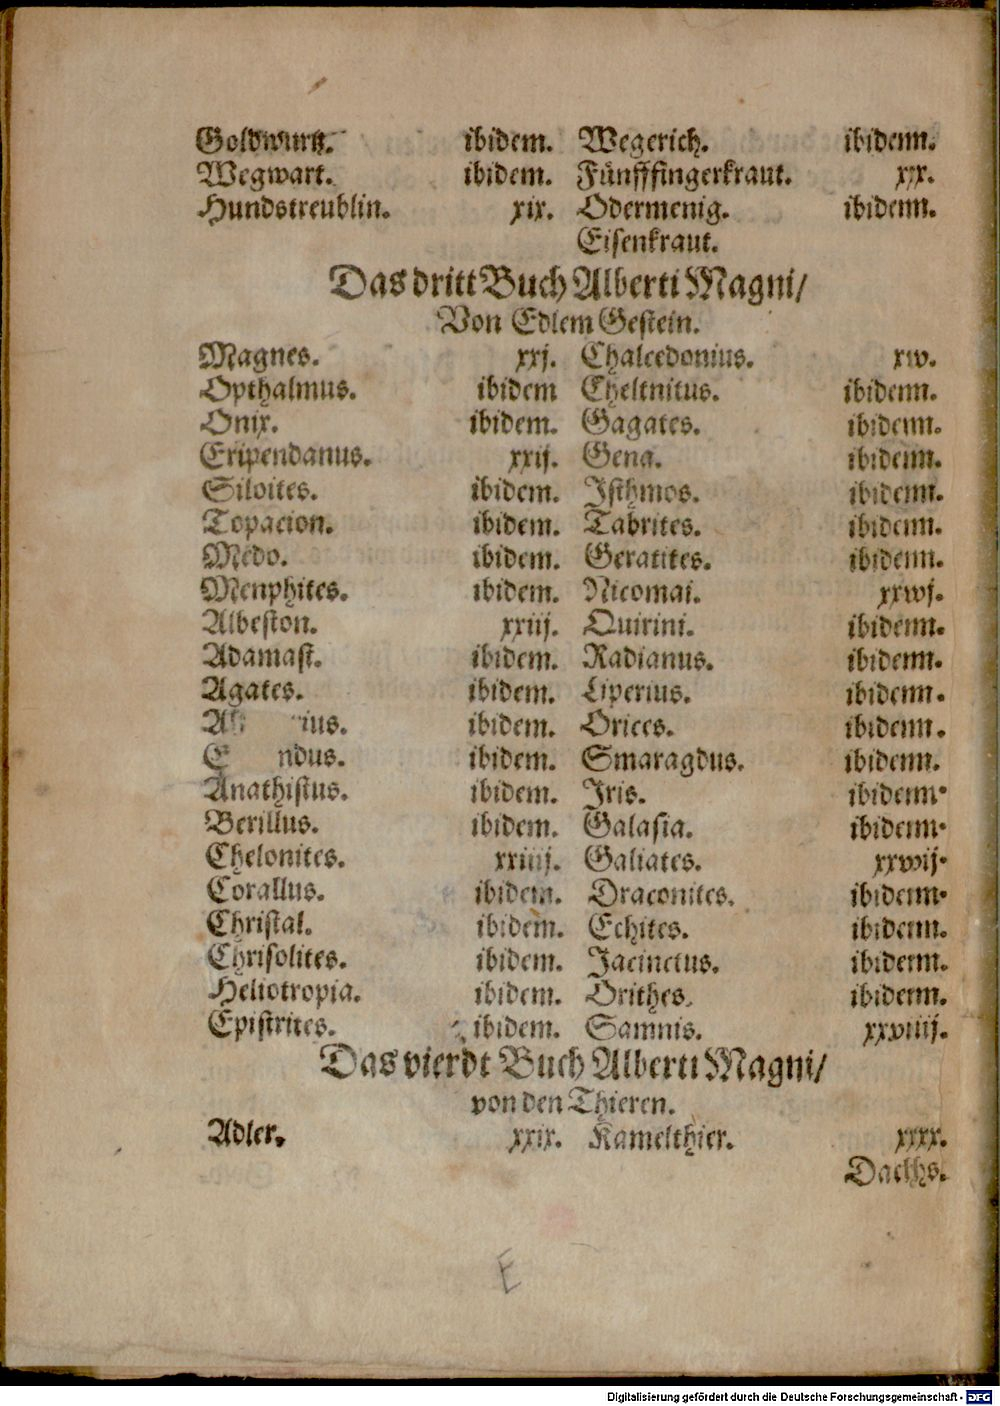 Goldwurtz. ibidem. Wegerich. ibidenn.
Wegwart. ibidem. Fünfffingerkraut. xx.
Hundstreublin. xix. Odermenig. ibidenn.
Eisenkraut.
Das dritt Buch Alberti Magni/
Von Edlem Gestein.
Magnes. xxj. Chalcedonius. xxv.
Opthalmus. ibidem Cheltnitus. ibidenn.
Onix. ibidem. Gagates. ibidenn.
Eripendanus. xxij. Gena. ibidenn.
Siloites. ibidem. Isthmos. ibidenn.
Topacion. ibidem. Tabrites. ibidenn.
Medo. ibidem. Geratites. ibidenn.
Menphites. ibidem. Nicomai. xxvj.
Albeston. xxiij. Quirini. ibidenn.
Adamast. ibidem. Radianus. ibidenn.
Agates. ibidem. Liperius. ibidenn.
ibidem. Orices. ibidenn.
ibidem. Smaragdus. ibidenn.
Anathistus. ibidem. Iris. ibidenn.
Berillus. ibidem. Galasia. ibidenn.
Chelonites. xxiiij. Galiates. xxvij.
Corallus. ibidem. Draconites. ibidenn.
Christal. ibidem. Echites. ibidenn.
Chrisolites. ibidem. Jacinctus. ibidenn.
Heliotropia. ibidem. Orithes. ibidenn.
Epistrites. ibidem. Samnis. xxviiij.
Das vierdt Buch Alberti Magni/
von den Thieren.
Adler. xxix. Kamelthier. xxxx.
Dachs.
E
Digitalisierung gefördert durch die Deutsche Forschungsgemeinschaft - DFG